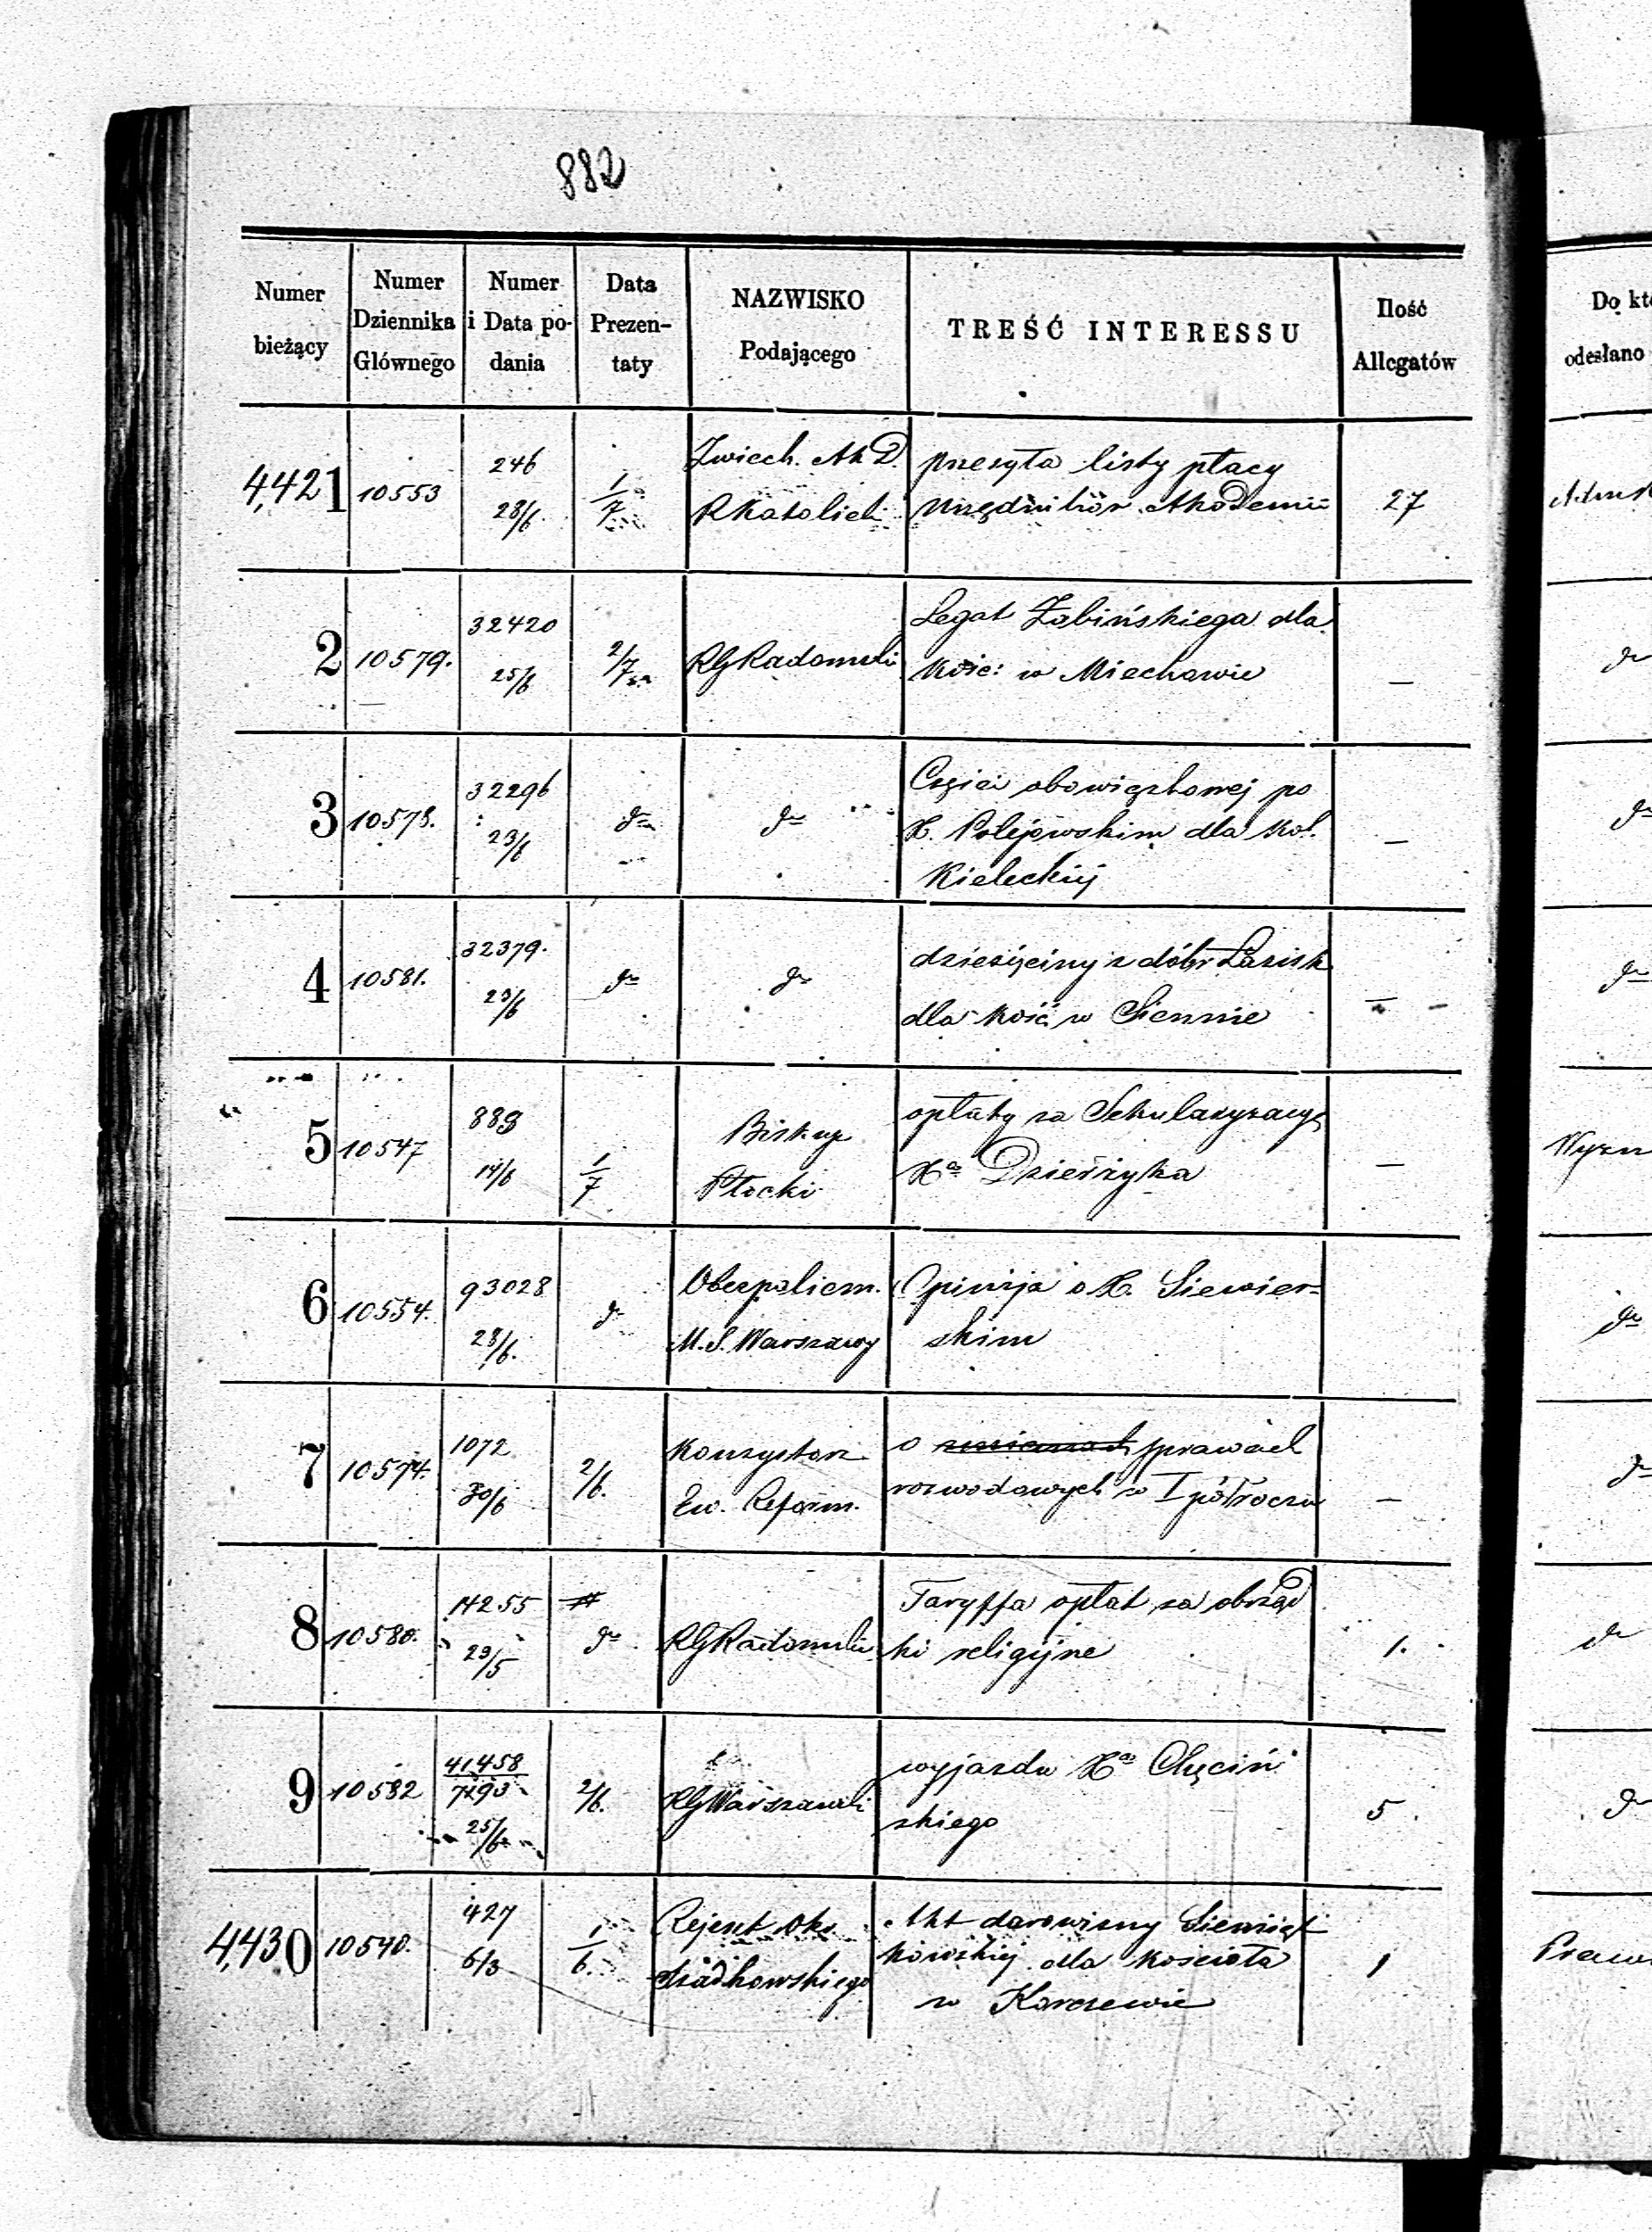 882
Numer bieżący
Numer Dziennika Głównego
Numer i Data podania
Data Prezentaty
NAZWISKO Podającego
TREŚĆ INTERESSU
Ilość Allegatów
Do kt
odesłano
4,421 10553 246 28/6 1/7
Zwierch. Ak D.
RKatolicki
przesyła listy płacy
urzędników Akademii
27
2 10579. 32420 25/6 2/7
RGRadomski
Legat Żabińskiego dla
kość: w Miechowie
—
3 10578. 32296 23/6 do do
Części obowiązkowej po
X. Polejowskim dla kol.
Kieleckiej
—
4 10581. 32379. 23/6 do do
dziesięciny z dóbr Łazisk
dla kość w Siennie
—
5 10547 889 14/6 1/7
Biskup
Płocki
opłaty za Sekularyzacyę
Xa Dzierżyka
—
6 10554. 93028 28/6. do
Oberpolicm.
M. S. Warszawy
Opinija o X. Siewier=
skim
7 10574. 1072 30/6 2/6.
Konzystorz
Ew. Reform.
o sprawach
rozwodowych w I półroczu
—
8 10580. 14255 23/5 do
RGRadomski
Taryffa opłat za obrząd
ki religijne
1.
9 10582 41458/7293 25/6 2/6.
RGWarszawski
wyjazdu Xa Chęciń
skiego
5.
4,430 10540. 427 6/3 1/6.
Rejent Okr.
Szadkowskiego
Akt darowizny Siemiąt
kowskiej dla kościoła
w Korczewie
1
do
do
do
do
do
do
do